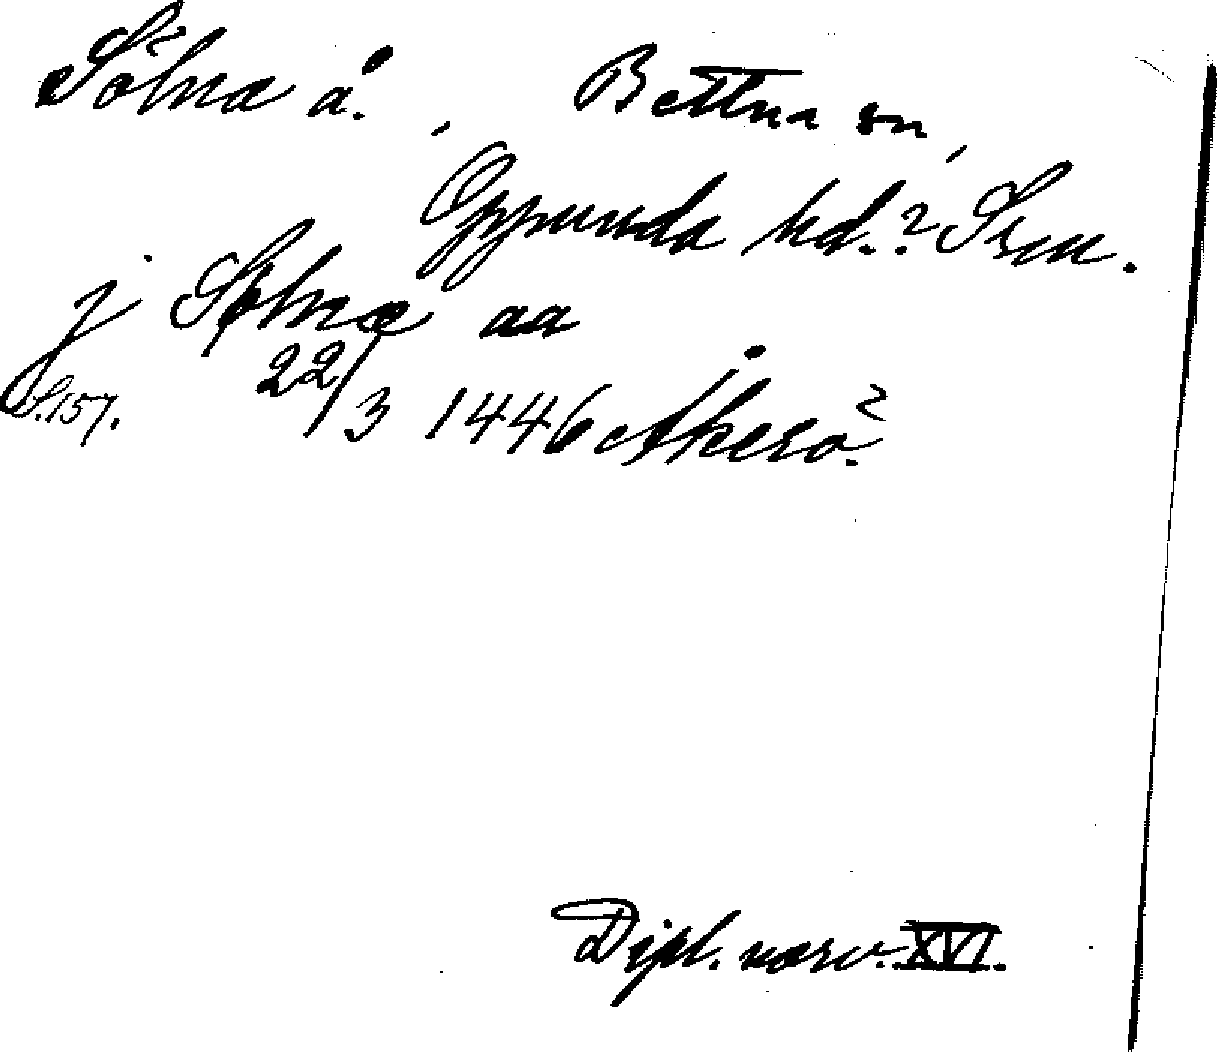 Sölna å?, Bettna sn,
Oppunda hd.? Srm.
j Sølnæ aa
S. 157. 22/3 1446 Åkerö?
Dipl. norv. XVI.